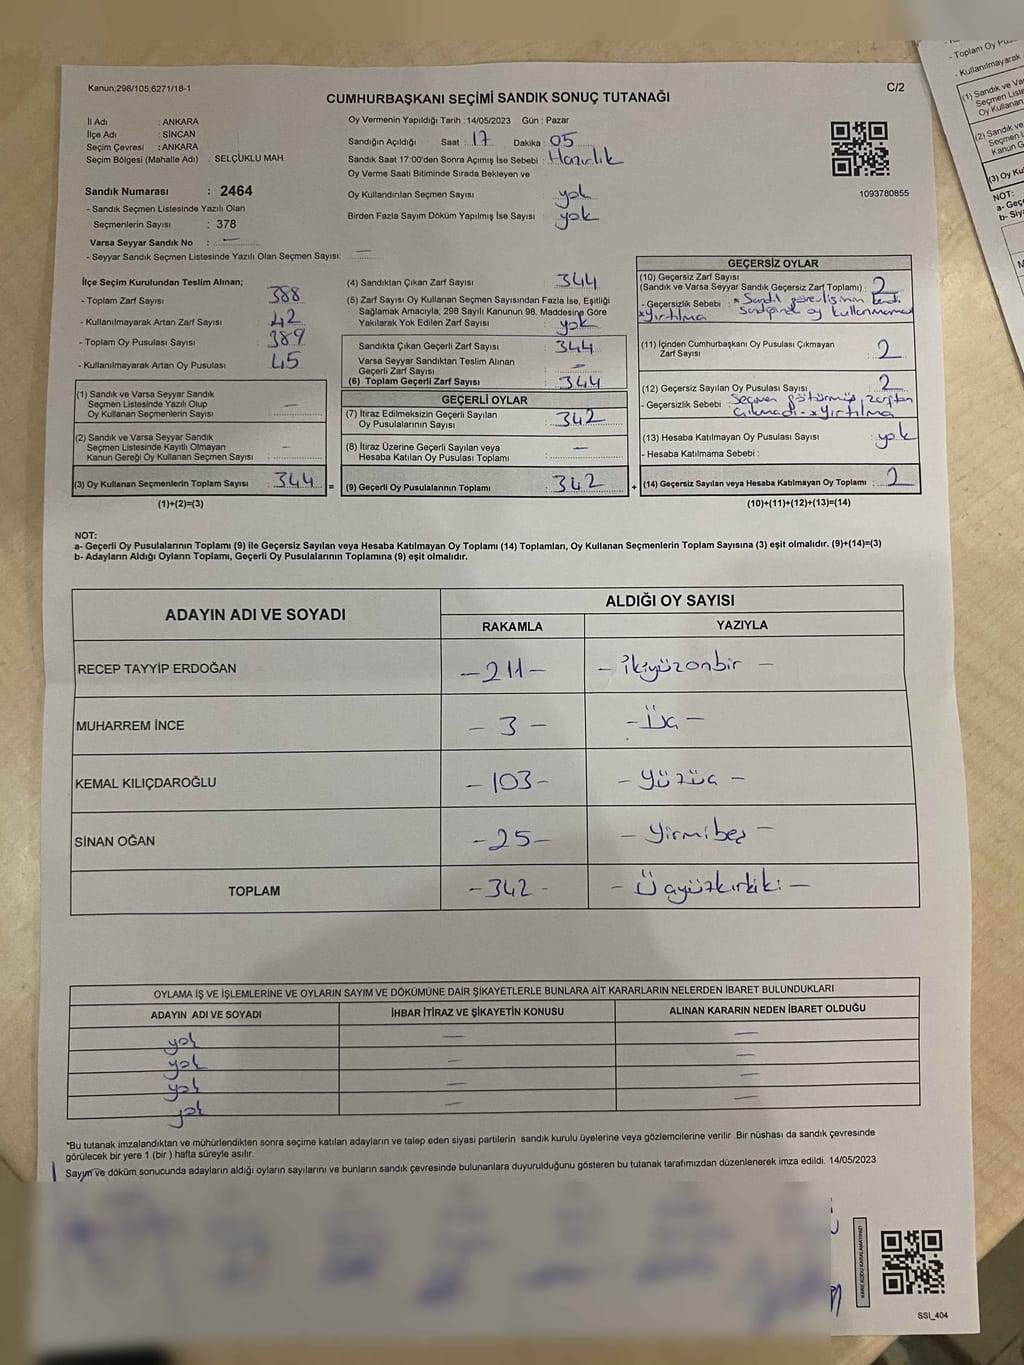 Kanun;298/105;6271/18-1
C/2
CUMHURBAŞKANI SEÇİMİ SANDIK SONUÇ TUTANAĞI
İl Adı : ANKARA
İlçe Adı : SİNCAN
Seçim Çevresi : ANKARA
Seçim Bölgesi (Mahalle Adı) : SELÇUKLU MAH.
Oy Vermenin Yapıldığı Tarih : 14/05/2023 Gün : Pazar
Sandığın Açıldığı Saat : 17 Dakika : 05
Sandık Saat 17:00'den Sonra Açımış İse Sebebi : Hazırlık
Oy Verme Saati Bitiminde Sırada Bekleyen ve
Oy Kullandırılan Seçmen Sayısı yok
Birden Fazla Sayım Döküm Yapılmış İse Sayısı : yok
1093780855
Sandık Numarası : 2464
- Sandık Seçmen Listesinde Yazılı Olan
Seçmenlerin Sayısı : 378
Varsa Seyyar Sandık No : —
- Seyyar Sandık Seçmen Listesinde Yazılı Olan Seçmen Sayısı: —
İlçe Seçim Kurulundan Teslim Alınan;
- Toplam Zarf Sayısı 388
- Kullanılmayarak Artan Zarf Sayısı : 42
- Toplam Oy Pusulası Sayısı : 389
- Kullanılmayarak Artan Oy Pusulası : 45
(1) Sandık ve Varsa Seyyar Sandık
Seçmen Listesinde Yazılı Olup
Oy Kullanan Seçmenlerin Sayısı : —
(2) Sandık ve Varsa Seyyar Sandık
Seçmen Listesinde Kayıtlı Olmayan
Kanun Gereği Oy Kullanan Seçmen Sayısı : —
(3) Oy Kullanan Seçmenlerin Toplam Sayısı : 344 =
(1)+(2)=(3)
(4) Sandıktan Çıkan Zarf Sayısı : 344
(5) Zarf Sayısı Oy Kullanan Seçmen Sayısından Fazla İse, Eşitliği
Sağlamak Amacıyla; 298 Sayılı Kanunun 98. Maddesine Göre
Yakılarak Yok Edilen Zarf Sayısı : yok
Sandıkta Çıkan Geçerli Zarf Sayısı : 344
Varsa Seyyar Sandıktan Teslim Alınan
Geçerli Zarf Sayısı : —
(6) Toplam Geçerli Zarf Sayısı : 344
GEÇERLİ OYLAR
(7) İtiraz Edilmeksizin Geçerli Sayılan
Oy Pusulalarının Sayısı : 342
(8) İtiraz Üzerine Geçerli Sayılan veya
Hesaba Katılan Oy Pusulası Toplamı : —
(9) Geçerli Oy Pusulalarının Toplamı : 342 +
GEÇERSİZ OYLAR
(10) Geçersiz Zarf Sayısı
(Sandık ve Varsa Seyyar Sandık Geçersiz Zarf Toplamı) : 2
- Geçersizlik Sebebi : * Sandık görevlisinin kendi
*Yırtılma sandığında oy kullanmaması
(11) İçinden Cumhurbaşkanı Oy Pusulası Çıkmayan
Zarf Sayısı : 2
(12) Geçersiz Sayılan Oy Pusulası Sayısı : 2
- Geçersizlik Sebebi : Seçmen götürmüş, zarftan
çıkmadı - *Yırtılma
(13) Hesaba Katılmayan Oy Pusulası Sayısı : yok
- Hesaba Katılmama Sebebi :
(14) Geçersiz Sayılan veya Hesaba Katılmayan Oy Toplamı : 2
(10)+(11)+(12)+(13)=(14)
NOT:
a- Geçerli Oy Pusulalarının Toplamı (9) ile Geçersiz Sayılan veya Hesaba Katılmayan Oy Toplamı (14) Toplamları, Oy Kullanan Seçmenlerin Toplam Sayısına (3) eşit olmalıdır. (9)+(14)=(3)
b- Adayların Aldığı Oyların Toplamı, Geçerli Oy Pusulalarının Toplamına (9) eşit olmalıdır.
ADAYIN ADI VE SOYADI ALDIĞI OY SAYISI
RAKAMLA YAZIYLA
RECEP TAYYİP ERDOĞAN -211- - ikiyüzonbir -
MUHARREM İNCE - 3 - - Üç -
KEMAL KILIÇDAROĞLU - 103 - - Yüzüç -
SİNAN OĞAN -25- - Yirmibeş -
TOPLAM -342 - - Üçyüzkırkiki -
OYLAMA İŞ VE İŞLEMLERİNE VE OYLARIN SAYIM VE DÖKÜMÜNE DAİR ŞİKAYETLERLE BUNLARA AİT KARARLARIN NELERDEN İBARET BULUNDUKLARI
ADAYIN ADI VE SOYADI İHBAR İTİRAZ VE ŞİKAYETİN KONUSU ALINAN KARARIN NEDEN İBARET OLDUĞU
yok — —
yok — —
yok — —
yok — —
*Bu tutanak imzalandıktan ve mühürlendikten sonra seçime katılan adayların ve talep eden siyasi partilerin sandık kurulu üyelerine veya gözlemcilerine verilir .Bir nüshası da sandık çevresinde
görülecek bir yere 1 (bir ) hafta süreyle asılır.
Sayım ve döküm sonucunda adayların aldığı oyların sayılarını ve bunların sandık çevresinde bulunanlara duyurulduğunu gösteren bu tutanak tarafımızdan düzenlenerek imza edildi. 14/05/2023
KARE KODU KARALAMAYINIZ!
SSİ_404
- Toplam Oy
- Kullanılmayarak
(1) Sandık ve
Seçmen
Oy Kullanan
(2) Sandık ve
Seçmen
Kanun
(3) Oy
NOT:
a-
b-